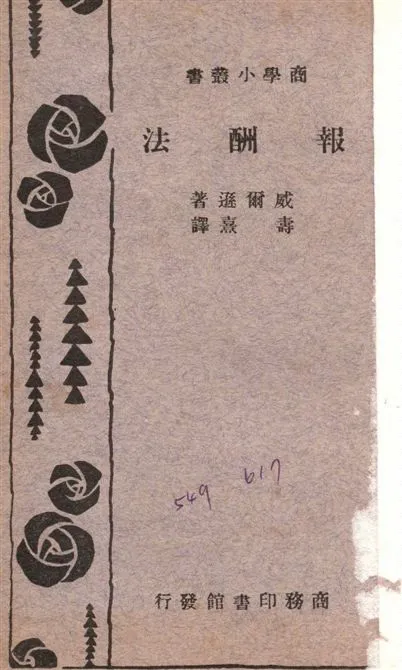 商學小叢書
報酬法
威爾遜著
壽熹譯
549 617
商務印書館發行